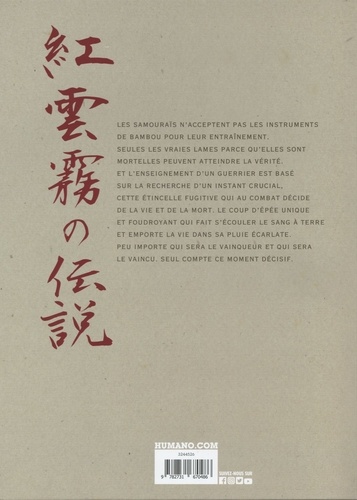 紅雲霧の伝説
LES SAMOURAÏS N'ACCEPTENT PAS LES INSTRUMENTS
DE BAMBOU POUR LEUR ENTRAÎNEMENT.
SEULES LES VRAIES LAMES PARCE QU'ELLES SONT
MORTELLES PEUVENT ATTEINDRE LA VÉRITÉ.
ET L'ENSEIGNEMENT D'UN GUERRIER EST BASÉ
SUR LA RECHERCHE D'UN INSTANT CRUCIAL,
CETTE ÉTINCELLE FUGITIVE QUI AU COMBAT DÉCIDE
DE LA VIE ET DE LA MORT. LE COUP D'ÉPÉE UNIQUE
ET FOUDROYANT QUI FAIT S'ÉCOULER LE SANG À TERRE
ET EMPORTE LA VIE DANS SA PLUIE ÉCARLATE.
PEU IMPORTE QUI SERA LE VAINQUEUR ET QUI SERA
LE VAINCU. SEUL COMPTE CE MOMENT DÉCISIF.
HUMANO.COM
SUIVEZ-NOUS SUR
9 782731 670486